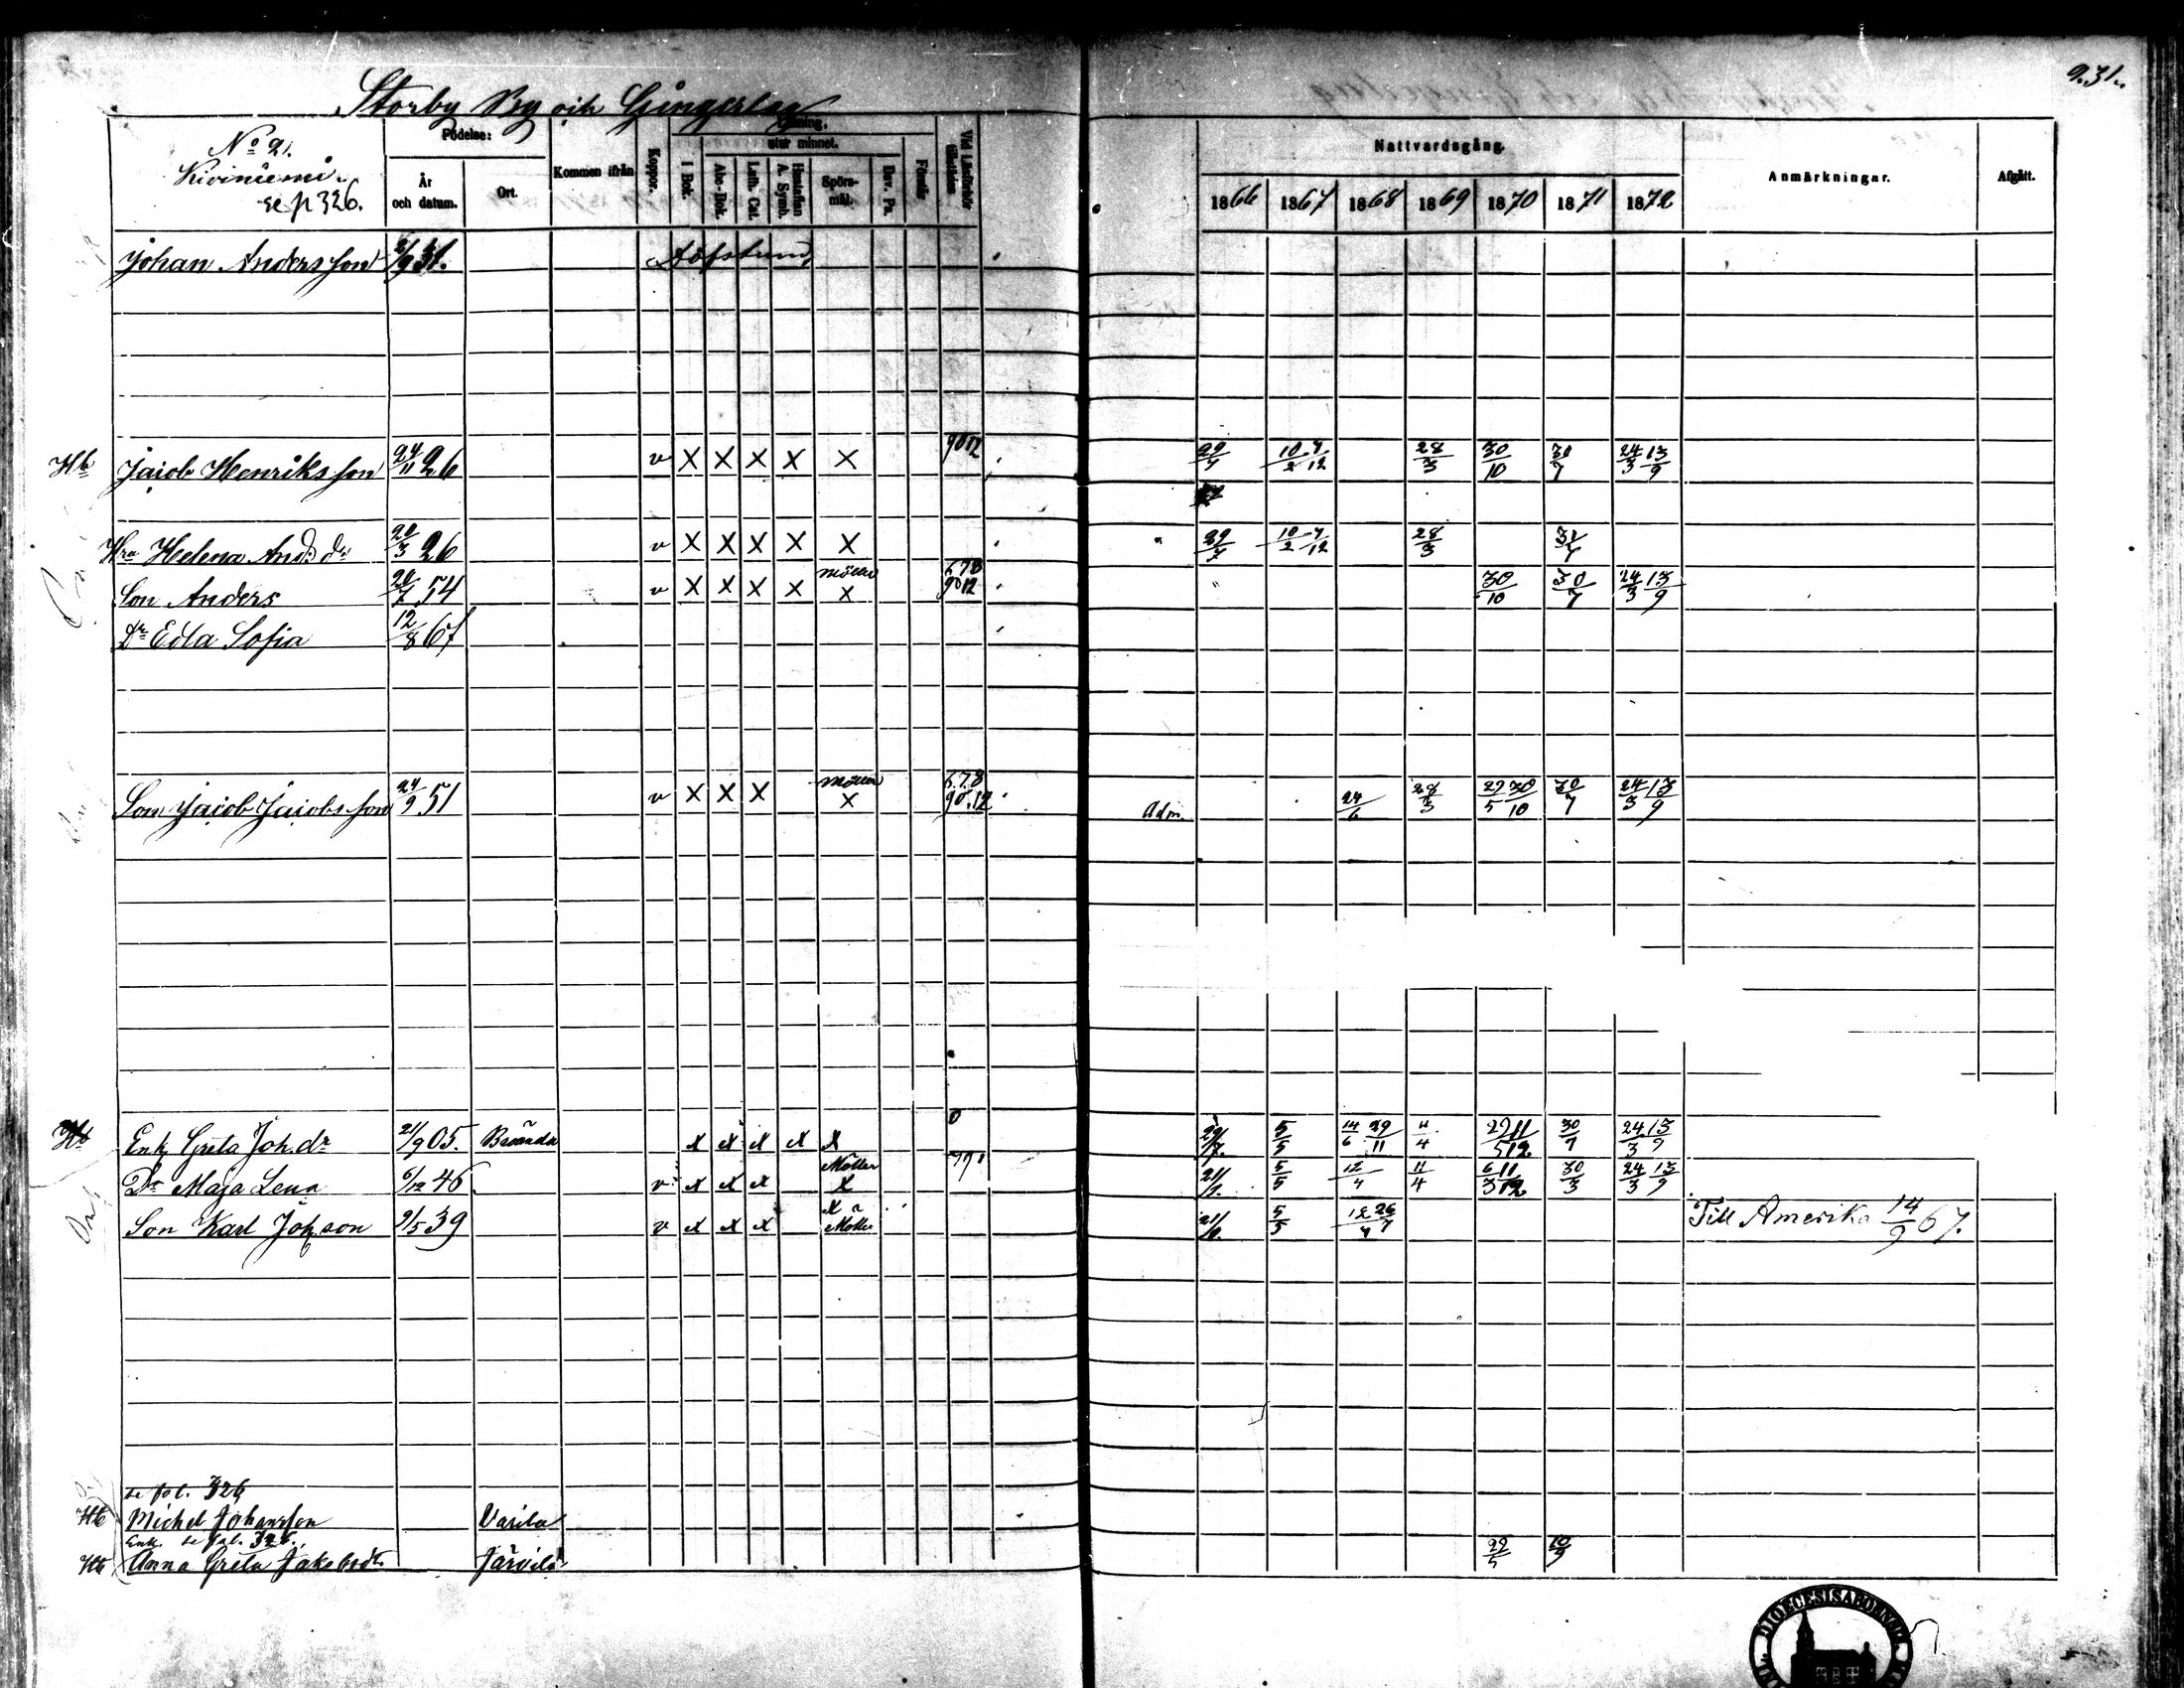 Storby By och Gångerlag
231.
No 21.
Kiviniemi
se p 326.
Födelse:
År och datum.
Ort.
Kommen ifrån
Koppor.
Läsning.
utur minnet.
I Bok.
Abc-Bok.
Luth. Cat.
Hustaflan A. Symb.
Spörs-mål.
Dav. Ps.
Förstår
Nattvardsgång.
1866 1867 1868 1869 1870 1871 1872
Anmärkningar.
Afgått.
Johan Andersson 2/9 31.
Hb Jacob Henriksson 24/11 26 v X X X X X 9012 29/7 10/2 7/12 28/3 30/10 30/7 24/3 13/9
Hru Helena And:dr 20/3 26 v X X X X X 29/7 10/2 7/12 28/3 31/7
Son Anders 20/7 54 v X X X X Möller X 678 9012 30/10 30/7 24/3 13/9
Dr Edla Sofia 12/8 67
Son Jacob Jacobsson 24/9 51 v X X X Möller X 6.7.8 90.12 Adm. 24/6 28/3 29/5 30/10 30/7 24/3 13/9
Enk Greta Joh.dr 21/9 05. x x x x x 0 29/7. 5/5 14/6 29/11 11/4 29/5 11/12 30/7 24/3 13/9
Dr Maja Lena 6/12 46 v x x x Möller x 12/4 11/4 6/3 11/12 30/3 24/3 13/9
Son Karl Joh.son 9/5 39 v x x x x Möller 5/5 Till Amerika 14/9 67.
se fol. 326
Hb Michel Johansson Varila
Enk. se fol. 326.
Hb Anna Greta Jakobsdr Järvilä 22/5 10/9
DIOECESIS ABOENSIS